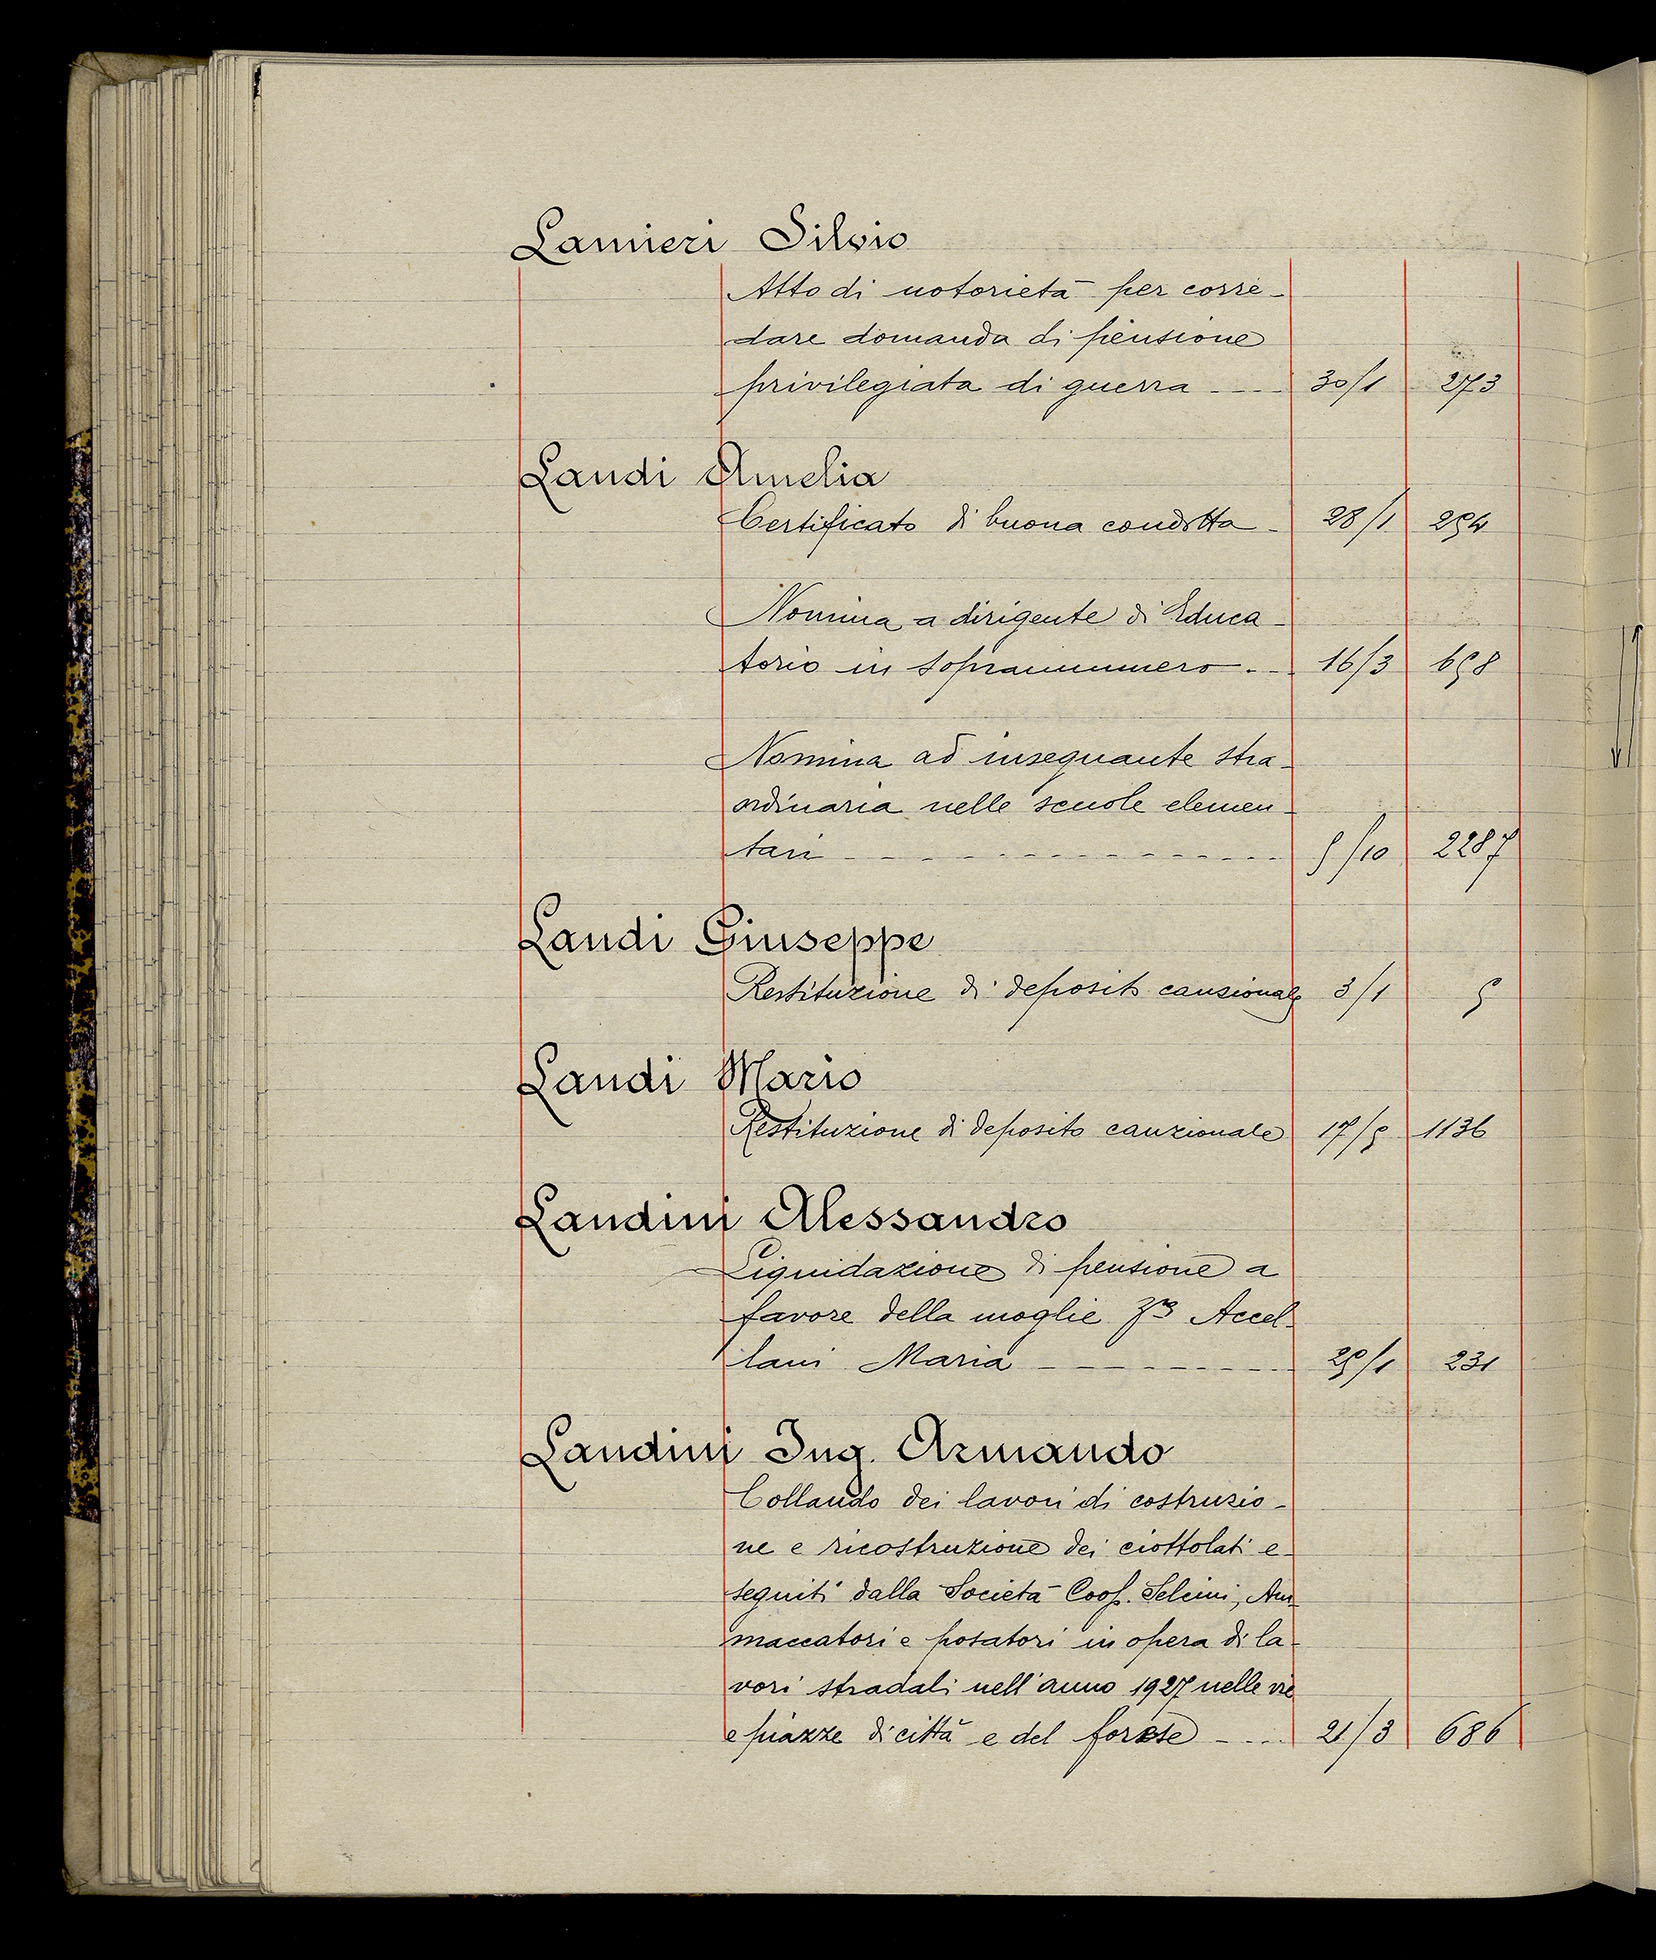 Lanieri Silvio
Atto di notorietà per corre-
dare domanda di pensione
privilegiata di guerra 30/1 273
Landi Amelia
Certificato di buona condotta 28/1 254
Nomina a dirigente di Educa-
torio in soprannumero 16/3 658
Nomina ad insegnante stra-
ordinaria nelle scuole elemen-
tari 5/10 2287
Landi Giuseppe
Restituzione di deposito cauzionale 3/1 5
Landi Mario
Restituzione di deposito cauzionale 17/5 1136
Landini Alessandro
Liquidazione di pensione a
favore della moglie Accel-
lani Maria 25/1 231
Landini Ing. Armando
Collaudo dei lavori di costruzio-
ne e ricostruzione dei ciottolati e-
seguiti dalla Società Coop. Selcini, Am-
maccatori e posatori in opera di la-
vori stradali nell'anno 1927 nelle vie
e piazze di città e del forese 21/3 686